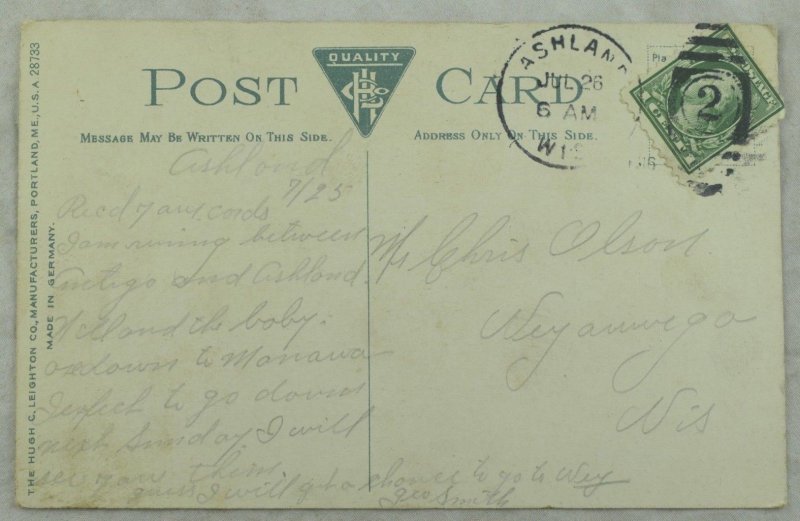 THE HUGH C. LEIGHTON CO., MANUFACTURERS, PORTLAND, ME., U.S.A. 28733
MADE IN GERMANY.
POST CARD
QUALITY
MESSAGE MAY BE WRITTEN ON THIS SIDE.
ADDRESS ONLY ON THIS SIDE.
ASHLAND
JUL 26
6 AM
WIS
2
POSTAGE
1 CENT 1
Pla
Ashland
7/25
Recd your cards
I am runing between
Antigo and Ashland.
Nell and the baby
are down to Manawa
I expect to go down
next Sunday I will
see you then
guess I will get a chance to go to Wey
Geo Smith
Mr Chris Olson
Weyauwega
Wis